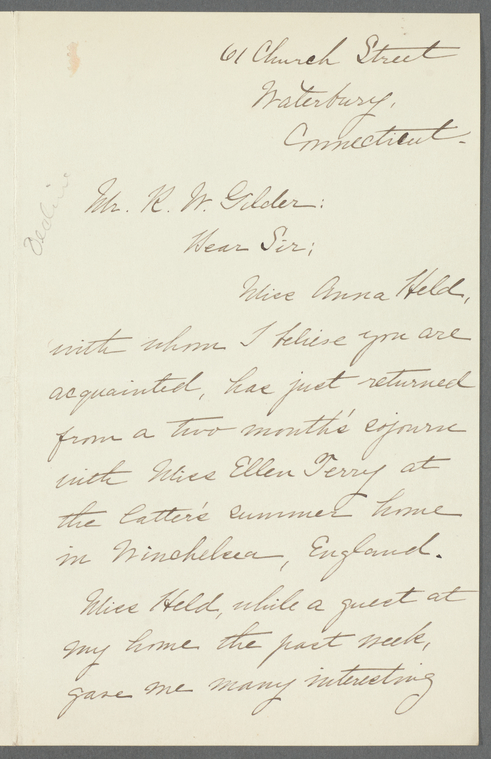 61 Church Street
Waterbury,
Connecticut.
Decline
Mr. R. W. Gilder:
Dear Sir;
Miss Anna Held,
with whom I believe you are
acquainted, has just returned
from a two month's sojourn
with Miss Ellen Terry at
the latter's summer home
in Winchelsea, England.
Miss Held, while a guest at
my home the past week,
gave me many interesting